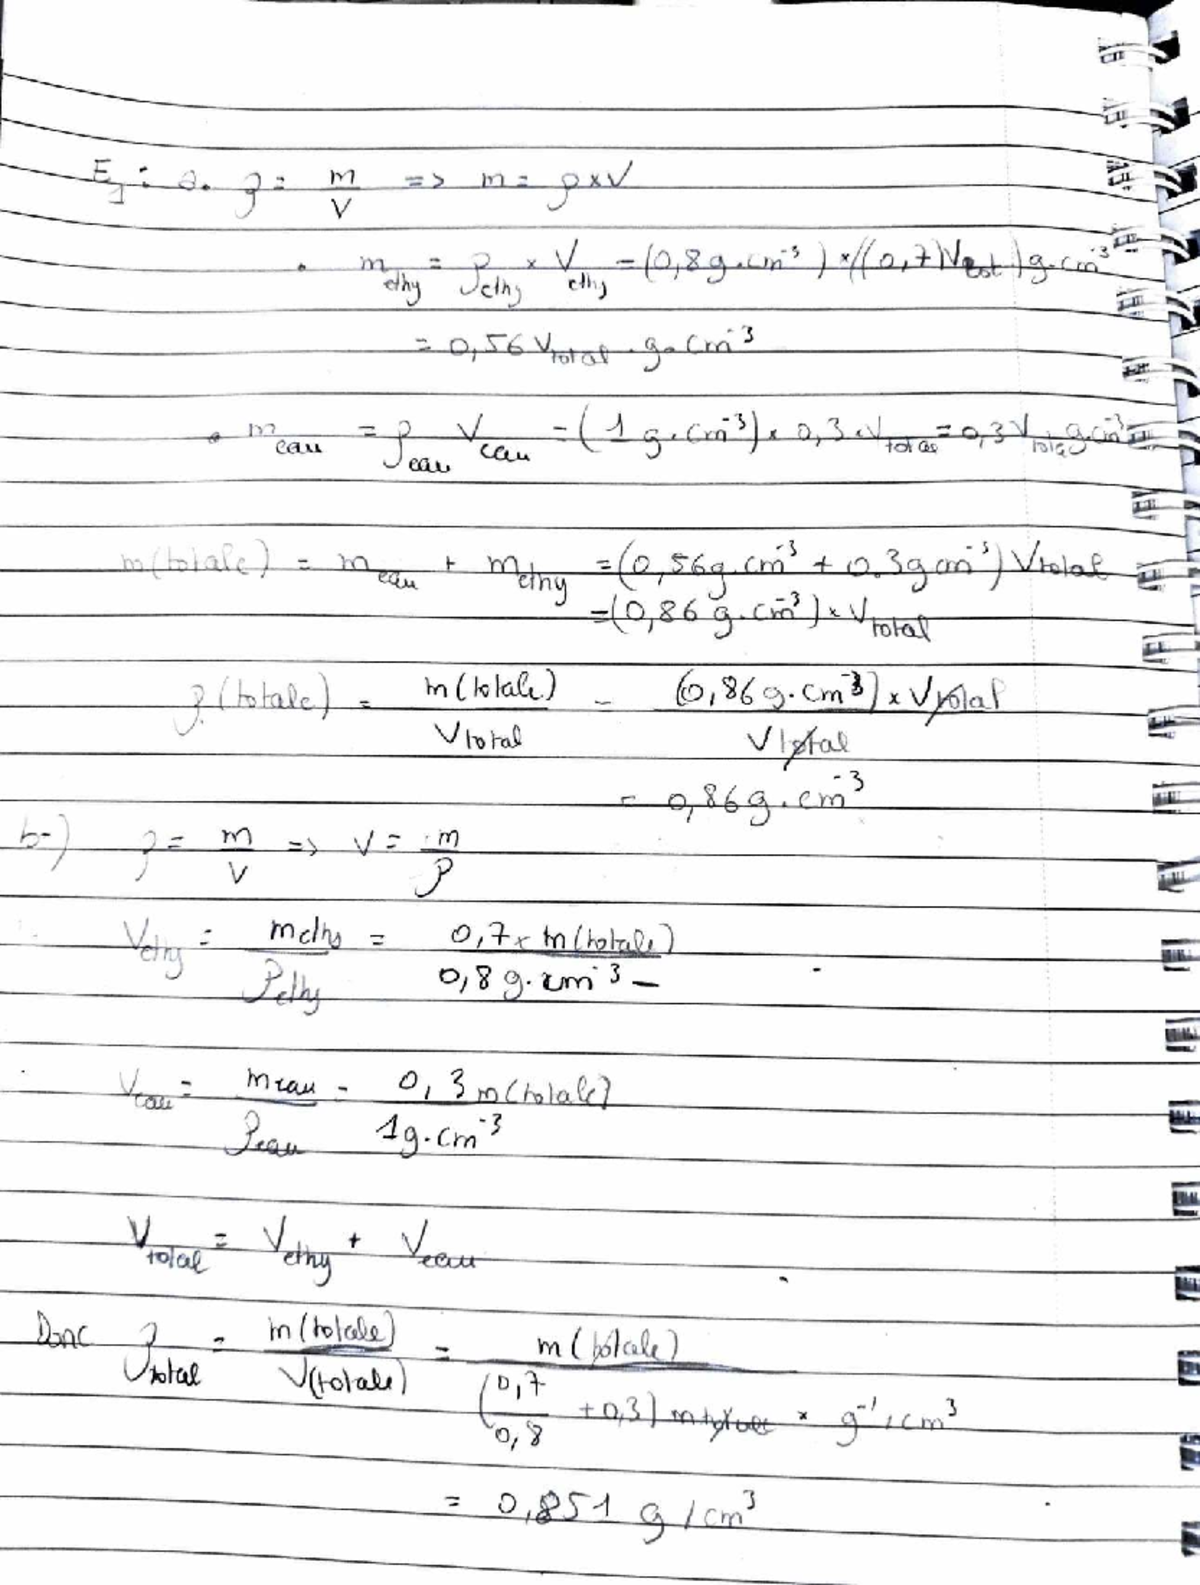 E₁ : a. ρ = m/V => m = ρ×V
• m_ethy = ρ_ethy × V_ethy = (0,8 g.cm⁻³) × ((0,7)V_tot) g.cm⁻³
= 0,56 V_total . g. cm⁻³
• m_eau = ρ_eau V_eau = (1 g.cm⁻³) × 0,3 . V_total = 0,3 V_total g.cm⁻³
m(totale) = m_eau + m_ethy = (0,56g.cm⁻³ + 0.3g cm⁻³) Vtotal
= (0,86 g.cm⁻³) × V_total
ρ(totale) = m(totale)/Vtotal = (0,86 g.cm⁻³) × Vtotal/Vtotal
= 0,86 g.cm⁻³
b-) ρ = m/V => V = m/ρ
V_ethy = m_ethy/ρ_ethy = 0,7 × m(totale)/0,8 g.cm⁻³
V_eau = m_eau/ρ_eau = 0,3 m(totale)/1g.cm⁻³
V_total = V_ethy + V_eau
Donc ρ_total = m(totale)/V(totale) = m(totale)/(0,7/0,8 + 0,3) m totale × g⁻¹.cm³
= 0,851 g/cm³